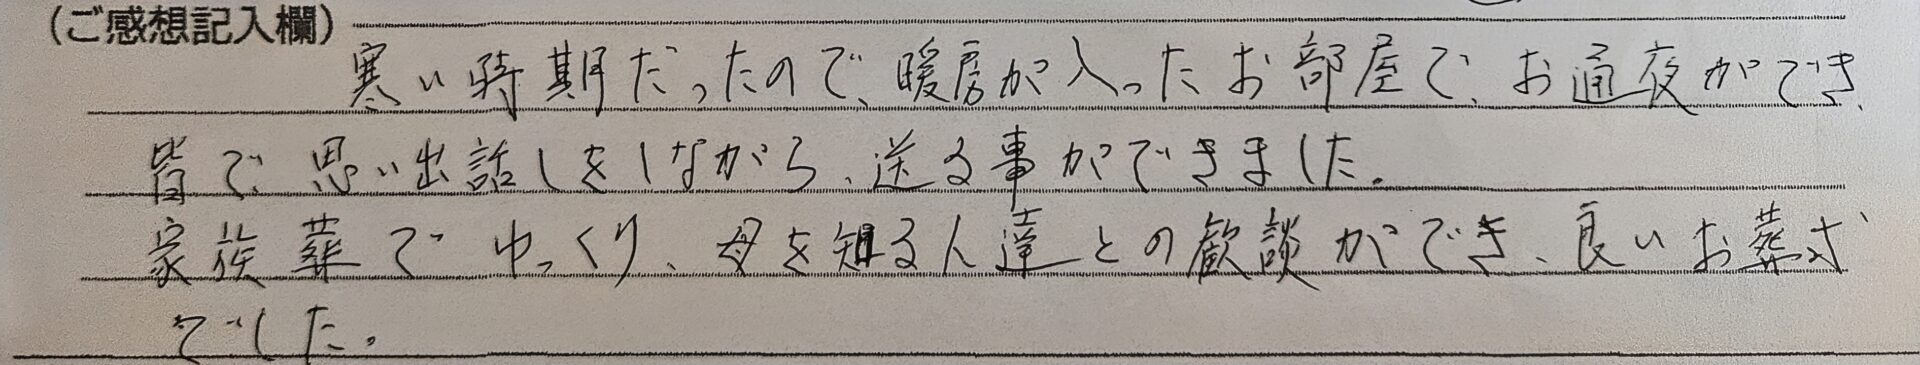 (ご感想記入欄)
寒い時期だったので、暖房が入ったお部屋で、お通夜ができ、
皆で、思い出話しをしながら、送る事ができました。
家族葬でゆっくり、母を知る人達との歓談ができ、良いお葬式
でした。